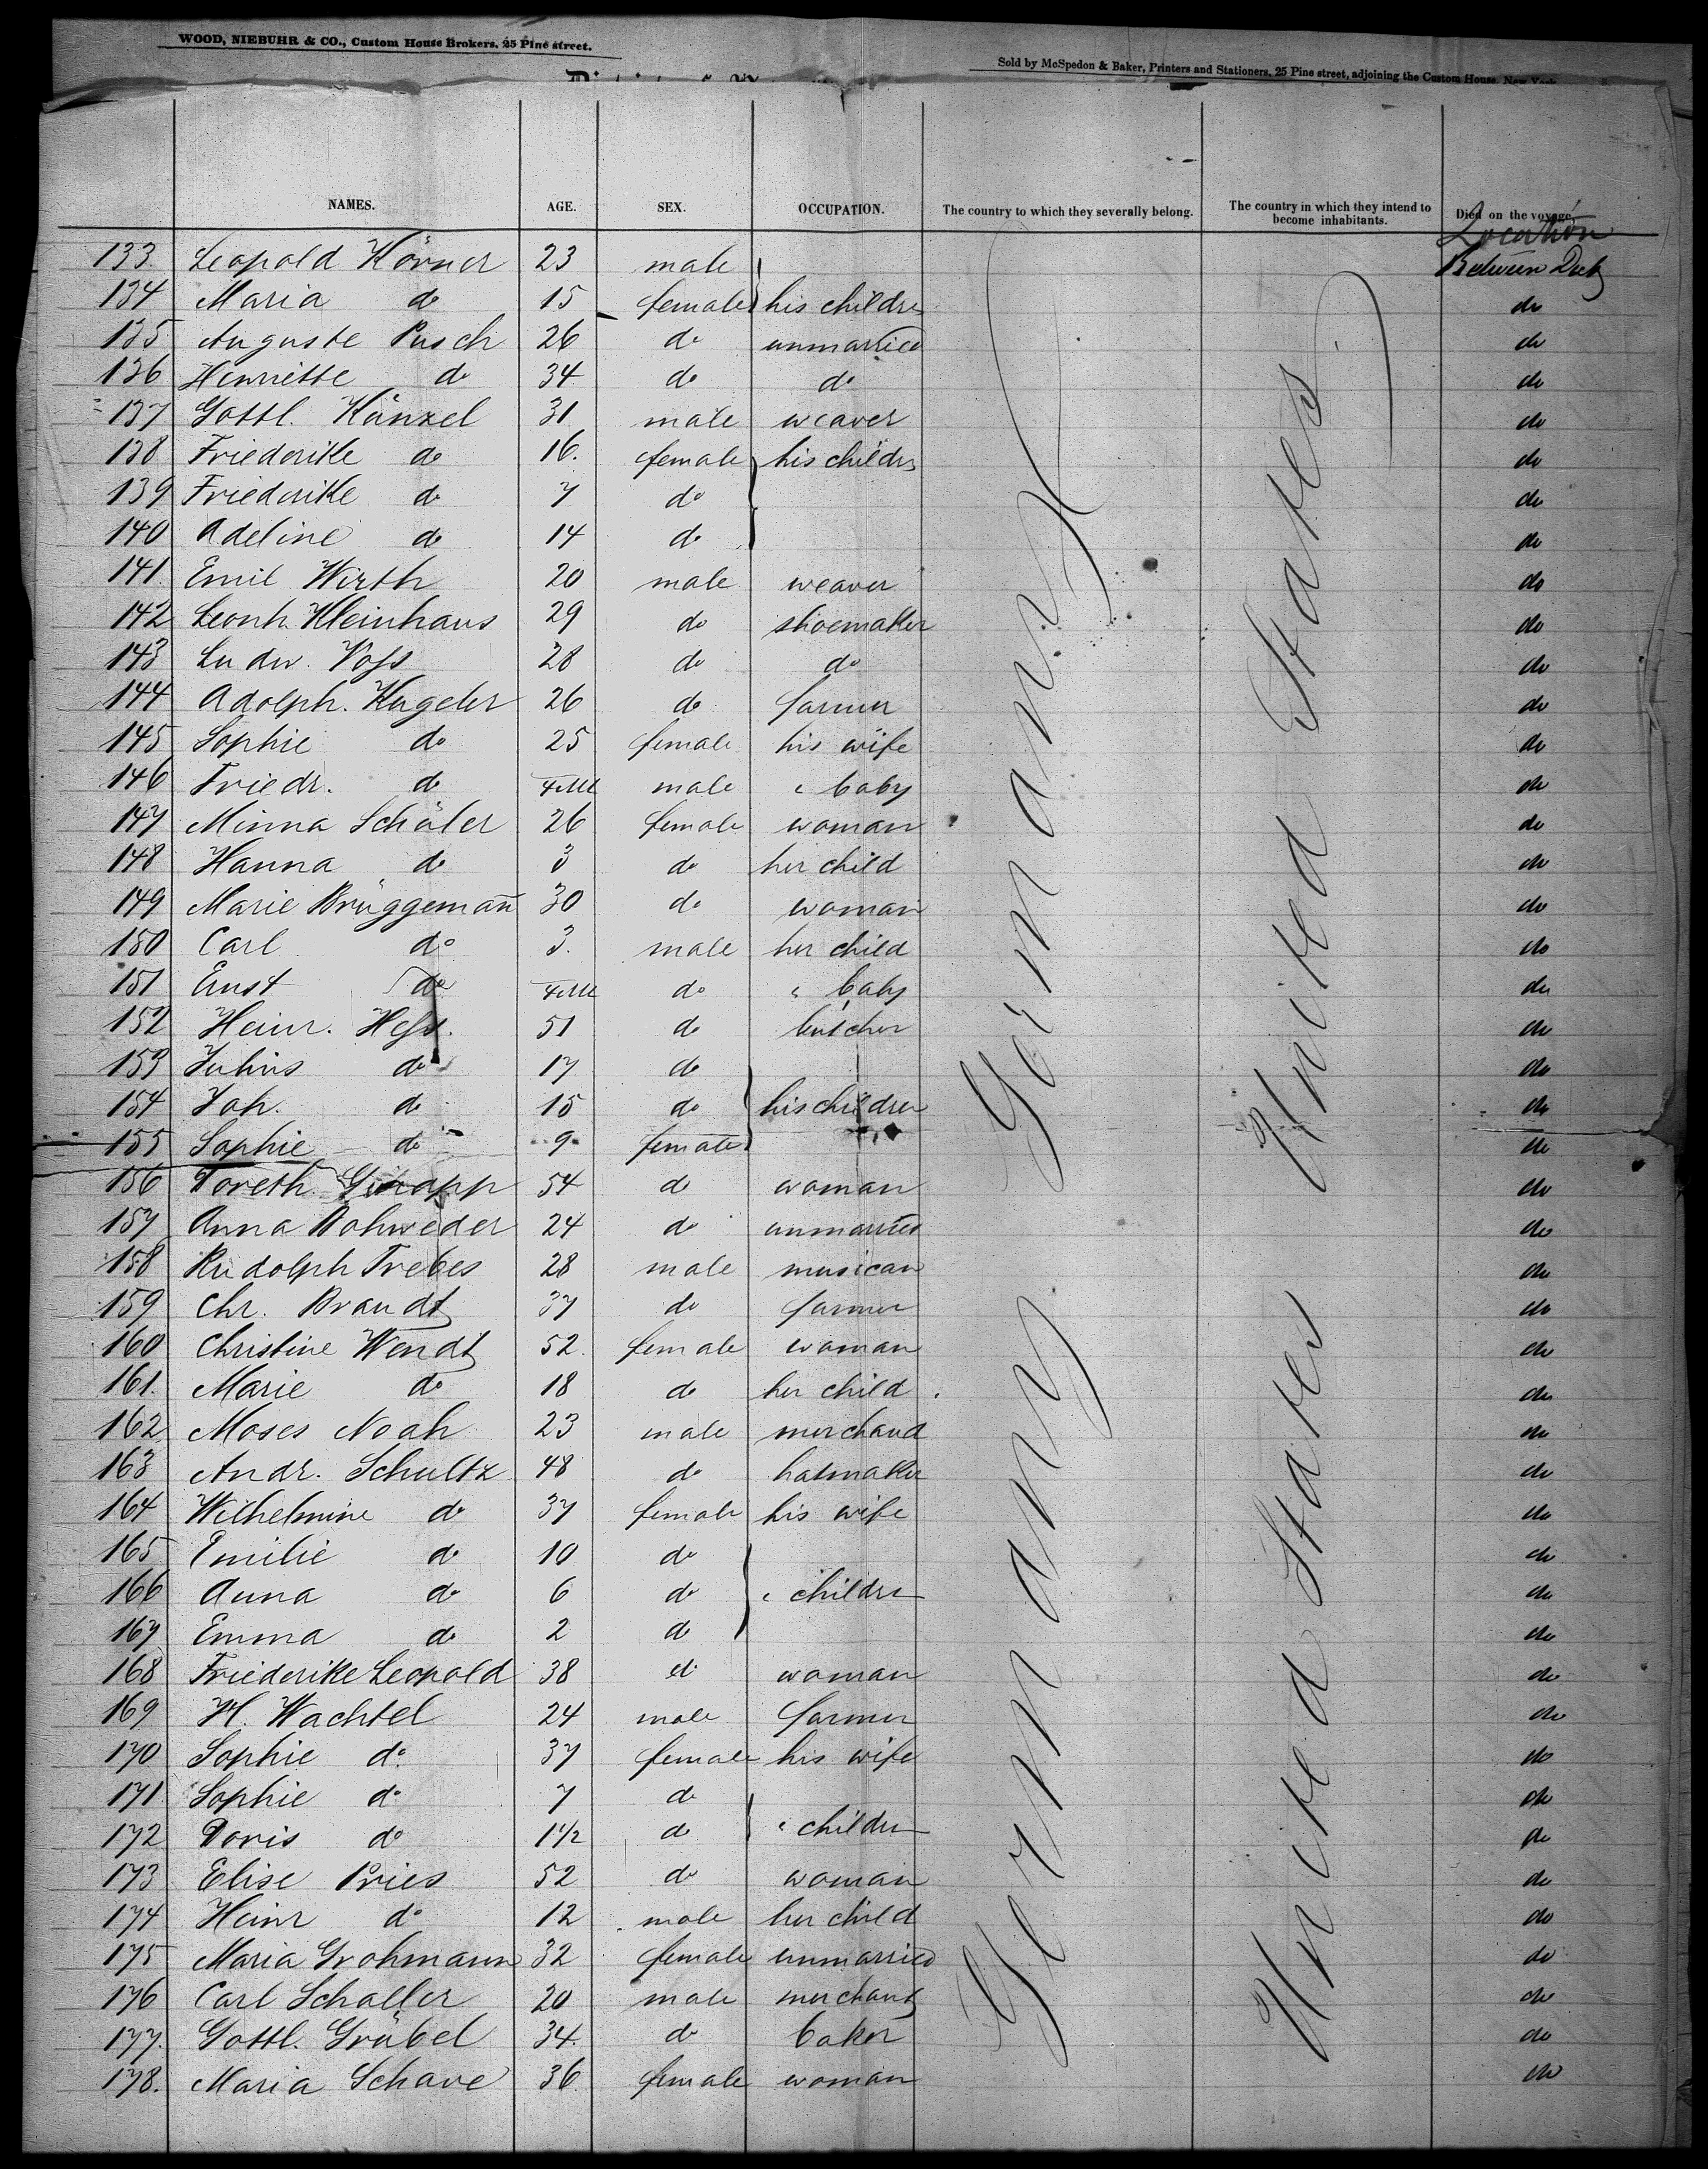 WOOD, NIEBUHR & CO., Custom House Brokers, 25 Pine street.
Sold by McSpedon & Baker, Printers and Stationers, 25 Pine street, adjoining the Custom House, New York
NAMES. AGE. SEX. OCCUPATION. The country to which they severally belong. The country in which they intend to become inhabitants. Died on the voyage.
Location
133. Leopold Körner 23 male Between Deck
134 Maria do 15 female his childre do
135 Auguste Pusch 26 do unmarried do
136 Henriette do 34 do do do
137 Gottl. Künzel 31 male weaver do
138 Friederike do 16. female his childre do
139 Friederike do 7 do do
140 Adeline do 14 do do
141. Emil Wirth 20 male weaver do
142 Leonh. Kleinhaus 29 do shoemaker do
143 Ludw. Voss 28 do do do
144 Adolph. Kugeler 26 do farmer do
145 Sophie do 25 female his wife do
146 Friedr. do 4 M male " baby do
147 Minna Schäler 26 female woman do
148 Hanna do 3 do her child do
149 Marie Brüggemañ 30 do woman do
150 Carl do 3. male her child do
151 Ernst do 4 M do " baby do
152 Heinr. Hess. 51 do butcher do
153 Julius do 17 do do
154 Joh. do 15 do his children do
155 Sophie do 9 female do
156 Doreth. 54 do woman do
157 Anna Rohweder 24 do unmarried do
158 Rudolph Trebes 28 male musican do
159 Chr. Brandt 37 do farmer do
160 Christine Wendt 52. female woman do
161. Marie do 18 do her child. do
162 Moses Noah 23 male merchand do
163 Andr. Schultz 48 do hatmaker do
164 Wilhelmine do 37 female his wife do
165 Emilie do 10 do do
166 Anna do 6 do " childre do
167 Emma do 2 do do
168 Friederike Leopold 38 d woman do
169 H. Wachtel 24 male farmer do
170 Sophie do 37 female his wife do
171 Sophie do 7 do do
172 Doris do 1 1/2 do " childre do
173 Elise Pries 52 do woman do
174 Heinr do 12 male her child do
175 Maria Grohmann 32 female unmarried do
176 Carl Schaller 20 male merchant do
177. Gottl. Gräbel 34. do baker do
178. Maria Schave 36. female woman do
Germany
United States
Germany
United States